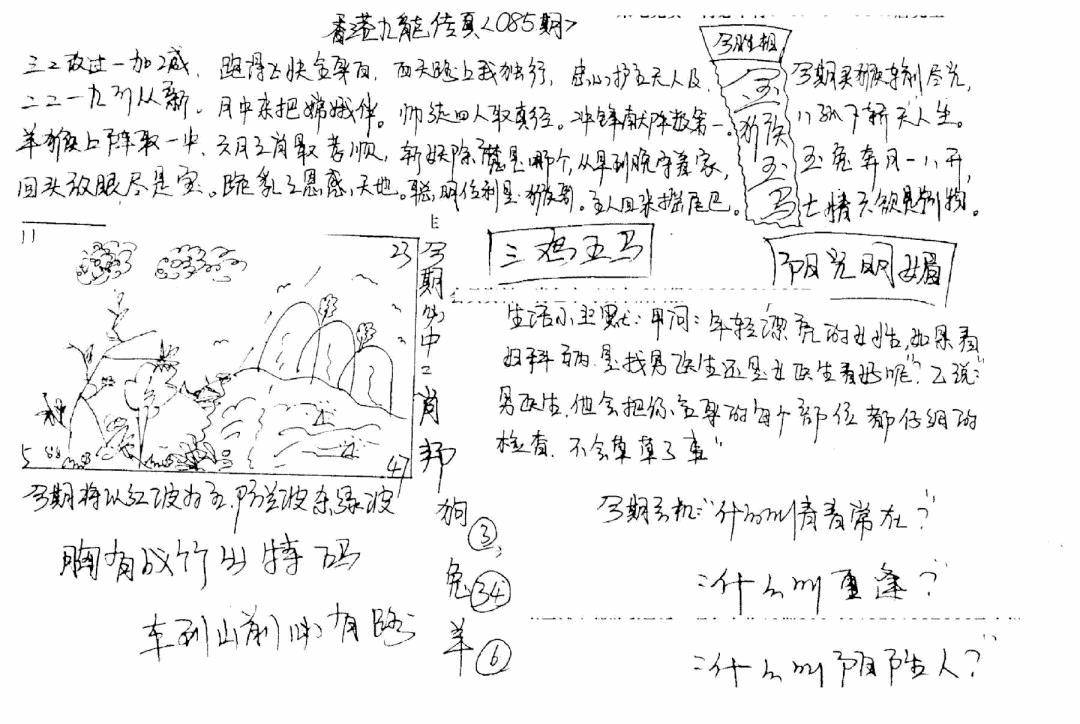 香港九能传真<085期>
三二改过一加减，跑得最快全身白，西天路上我独行，忠心护主无人及，
二二一九列从新。月中来把嫦娥伴。师徒四人取真经。冲锋献阵数第一。
羊猴上阵取一中，六月三肖最孝顺，斩妖除魔是哪个，从早到晚守着家，
回头放眼尽是宝。跪乳之恩感天地。聪明伶利是猴哥。主人回来摇尾巴。
今胜相
玉
猴
玉
马
今期买猴特别尽兴，
玉兔奔月一八开，
三鸡五马
阳光明媚
11
23
5
47
今期必中二肖邦
狗③、
兔㉞
羊⑥
生活小幽默：甲问：年轻漂亮的女性，如果看
妇科病，是找男医生还是女医生看好呢？乙说：“
男医生，他会把你全身的每个部位都仔细的
检查，不会草草了事”
今期将以红波为主，防蓝波杀绿波
胸有成竹出特码
车到山前必有路
今期玄机：“什么叫青春常在？”
：什么叫重逢？”
：什么叫阴阳人？”